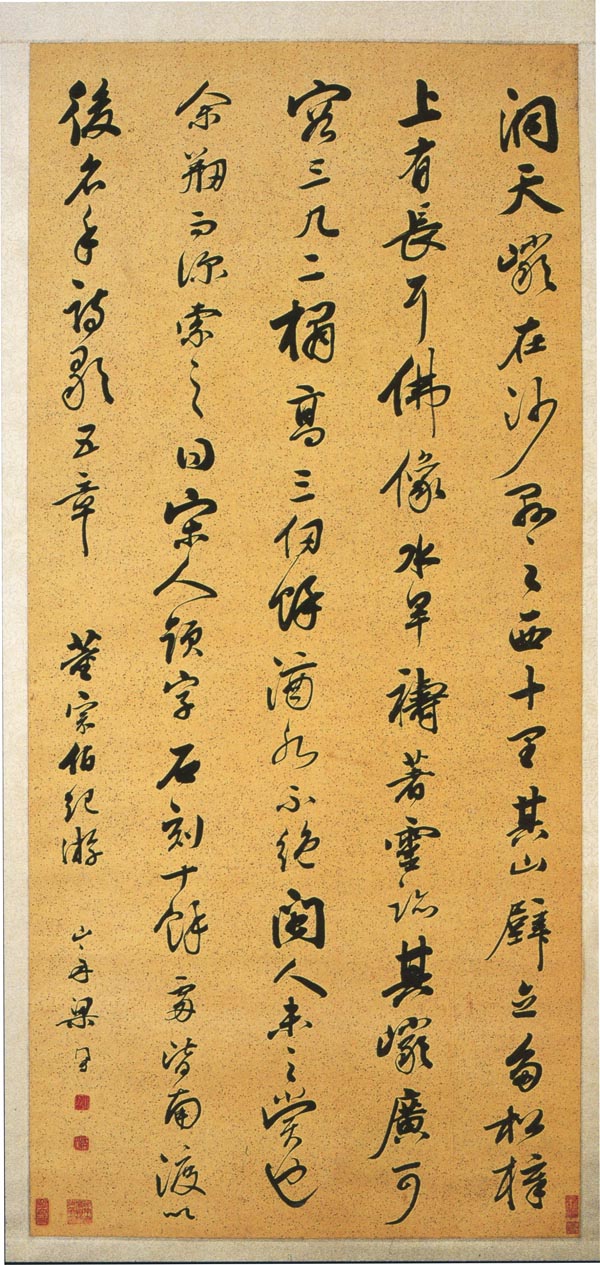 洞天巖在沙縣之西十里其山壁立多松樟
上有長耳佛像水旱禱著靈跡其巖廣可
容三几二榻高三仞餘滴水不絕閩人未之賞也
余剙而深索之曰宋人題字石刻十餘處皆南渡以
後名手詩歌五章
董宗伯紀游
山舟梁同書